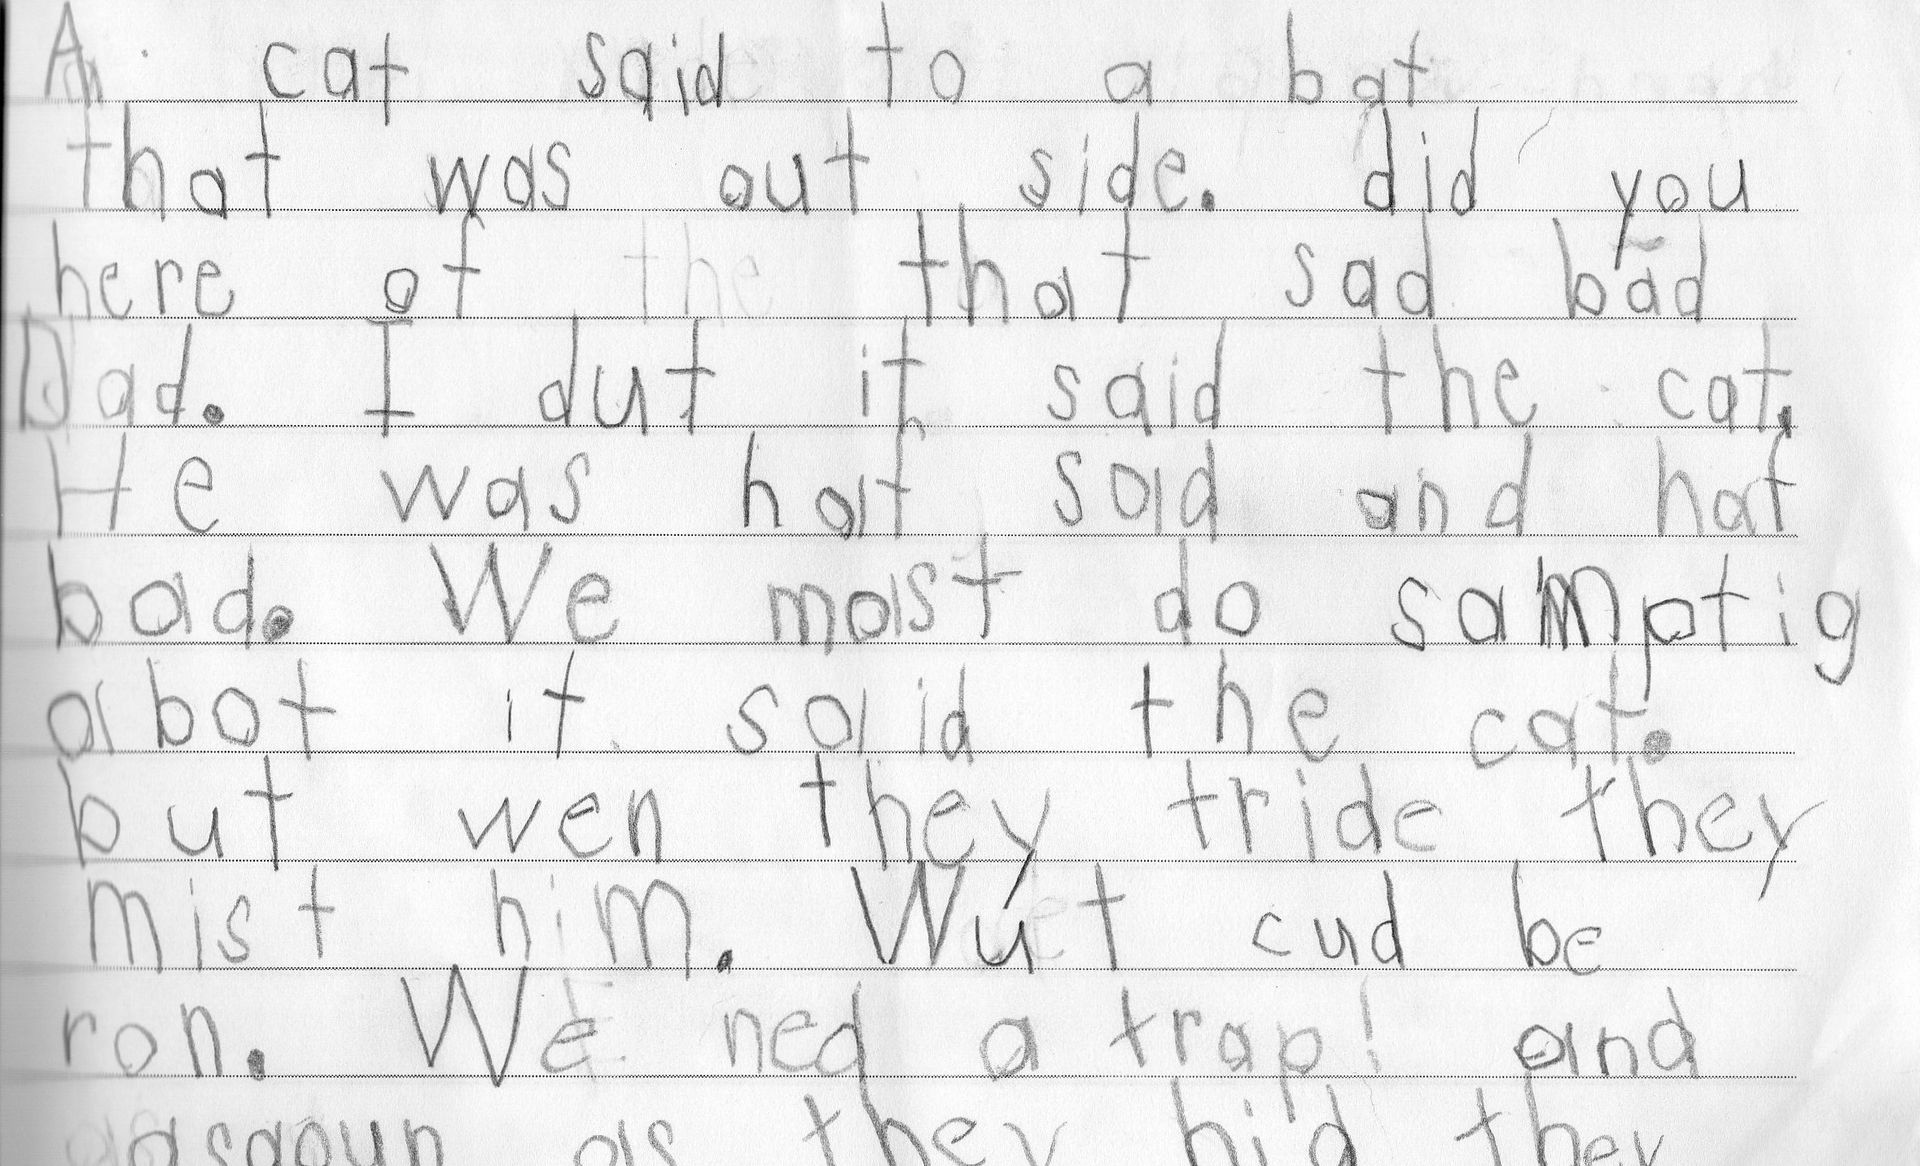 A cat said to a bat
that was out side. did you
here of that sad bad
Dad. I dut it said the cat.
He was haf sad and haf
bad. We mast do samptig
abot it said the cat.
but wen they tride they
mist him. Wut cud be
ron. We ned a trap! and
as they hid they